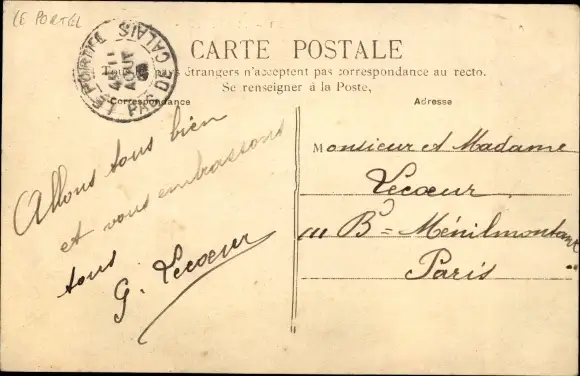 LE PORTEL
LE PORTEL PAS DE CALAIS
AOUT
CARTE POSTALE
étrangers n'acceptent pas correspondance au recto.
Se renseigner à la Poste,
Correspondance
Adresse
Allons tous bien
et vous embrassons
tous
G. Lecoeur
Monsieur et Madame
Lecoeur
111 Bd Ménilmontant
Paris